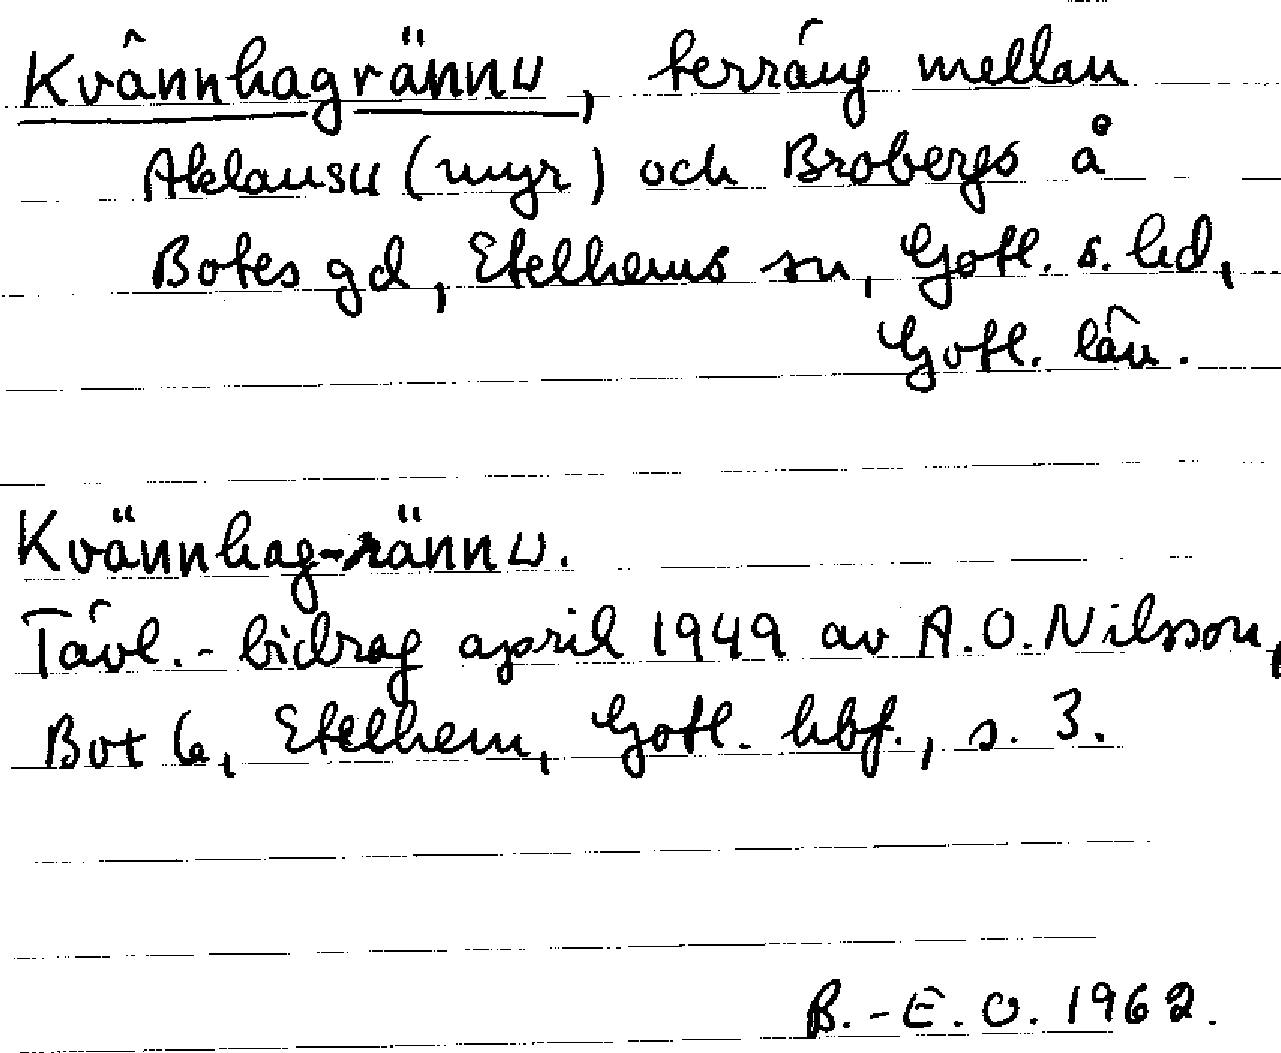 Kvännhagrännu, terräng mellan
Aklausu (myr) och Brobergs å
Botes gd, Etelhems sn, Gotl. s. hd,
Gotl. län.
Kvännhag-rännu.
Tävl.-bidrag april 1949 av A.O. Nilsson,
Bot 6, Etelhem, Gotl. hbf., s. 3.
B.-E.O. 1962.